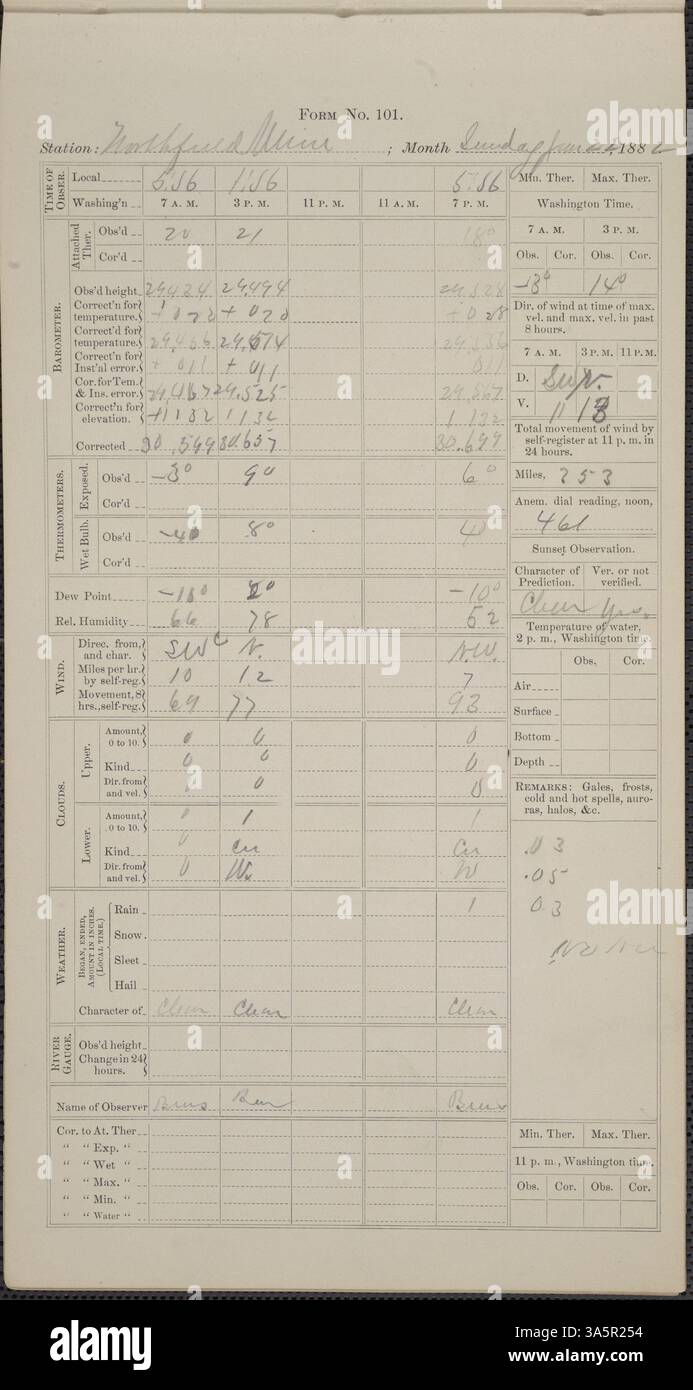 FORM No. 101.
Station: Northfield Minn ; Month Sunday Jan 188
TIME OF OBSER.
Local 5.56 1.56 5.56
Washing'n 7 A. M. 3 P. M. 11 P. M. 11 A. M. 7 P. M.
BAROMETER.
Attached Ther.
Obs'd 20 21 18°
Cor'd
Obs'd height 29.494
Correct'n for temperature.
Correct'd for temperature.
Correct'n for Inst'al error. + 011 + 011 011
Cor. for Tem. & Ins. error. 29.467 29.525 29.567
Correct'n for elevation. +1132 1132 1.132
Corrected 30.599 30.657 30.699
THERMOMETERS.
Exposed.
Obs'd -3° 9° 6°
Cor'd
Wet Bulb.
Obs'd -4° 8° 4°
Cor'd
Dew Point -10°
Rel. Humidity 66 78 52
WIND.
Direc. from, and char. SW N. N.W.
Miles per hr. by self-reg. 10 12 7
Movement, 8 hrs., self-reg. 69 77 93
CLOUDS.
Upper.
Amount, 0 to 10. 0 0 0
Kind 0 0 0
Dir. from and vel. 0 0
Lower.
Amount, 0 to 10. 0 1 1
Kind 0 Cu Cu
Dir. from and vel. 0 W. W
WEATHER.
BEGAN, ENDED, AMOUNT IN INCHES. (LOCAL TIME.)
Rain 1
Snow
Sleet
Hail
Character of Clear Clear Clear
RIVER GAUGE.
Obs'd height
Change in 24 hours.
Name of Observer
Cor. to At. Ther
" " Exp. "
" " Wet "
" " Max. "
" " Min. "
" " Water "
Min. Ther. Max. Ther.
Washington Time.
7 A. M. 3 P. M.
Obs. Cor. Obs. Cor.
-3° 14°
Dir. of wind at time of max. vel. and max. vel. in past 8 hours.
7 A. M. 3 P. M. 11 P. M.
D. SW N.
V. 11
Total movement of wind by self-register at 11 p. m. in 24 hours.
Miles, 253
Anem. dial reading, noon,
461
Sunset Observation.
Character of Prediction. Ver. or not verified.
Clear Yes.
Temperature of water, 2 p. m., Washington time.
Obs. Cor.
Air
Surface
Bottom
Depth
REMARKS: Gales, frosts, cold and hot spells, auroras, halos, &c.
.03
.05
03
Min. Ther. Max. Ther.
11 p. m., Washington time.
Obs. Cor. Obs. Cor.
alamy
Image ID: 3A5R254
www.alamy.com